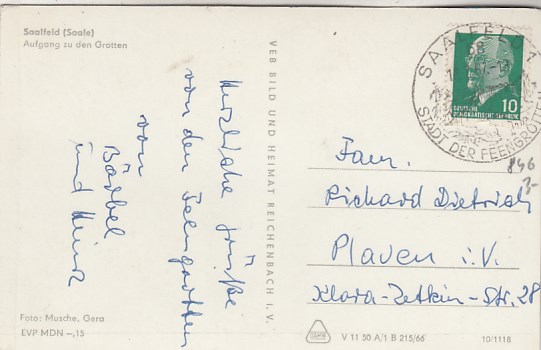 Saalfeld (Saale)
Aufgang zu den Grotten
Herzliche Grüße
von den Feengrotten
von
Bärbel
und Heinz
VEB BILD UND HEIMAT REICHENBACH I. V.
SAALFELD 1
STADT DER FEENGROTTEN
10
DEUTSCHE
DEMOKRATISCHE REPUBLIK
846
3-
Fam.
Richard Dietrich
Plauen i. V.
Klara-Zetkin-Str. 28
Foto: Musche, Gera
EVP MDN –,15
V 11 50 A/1 B 215/66
10/1118